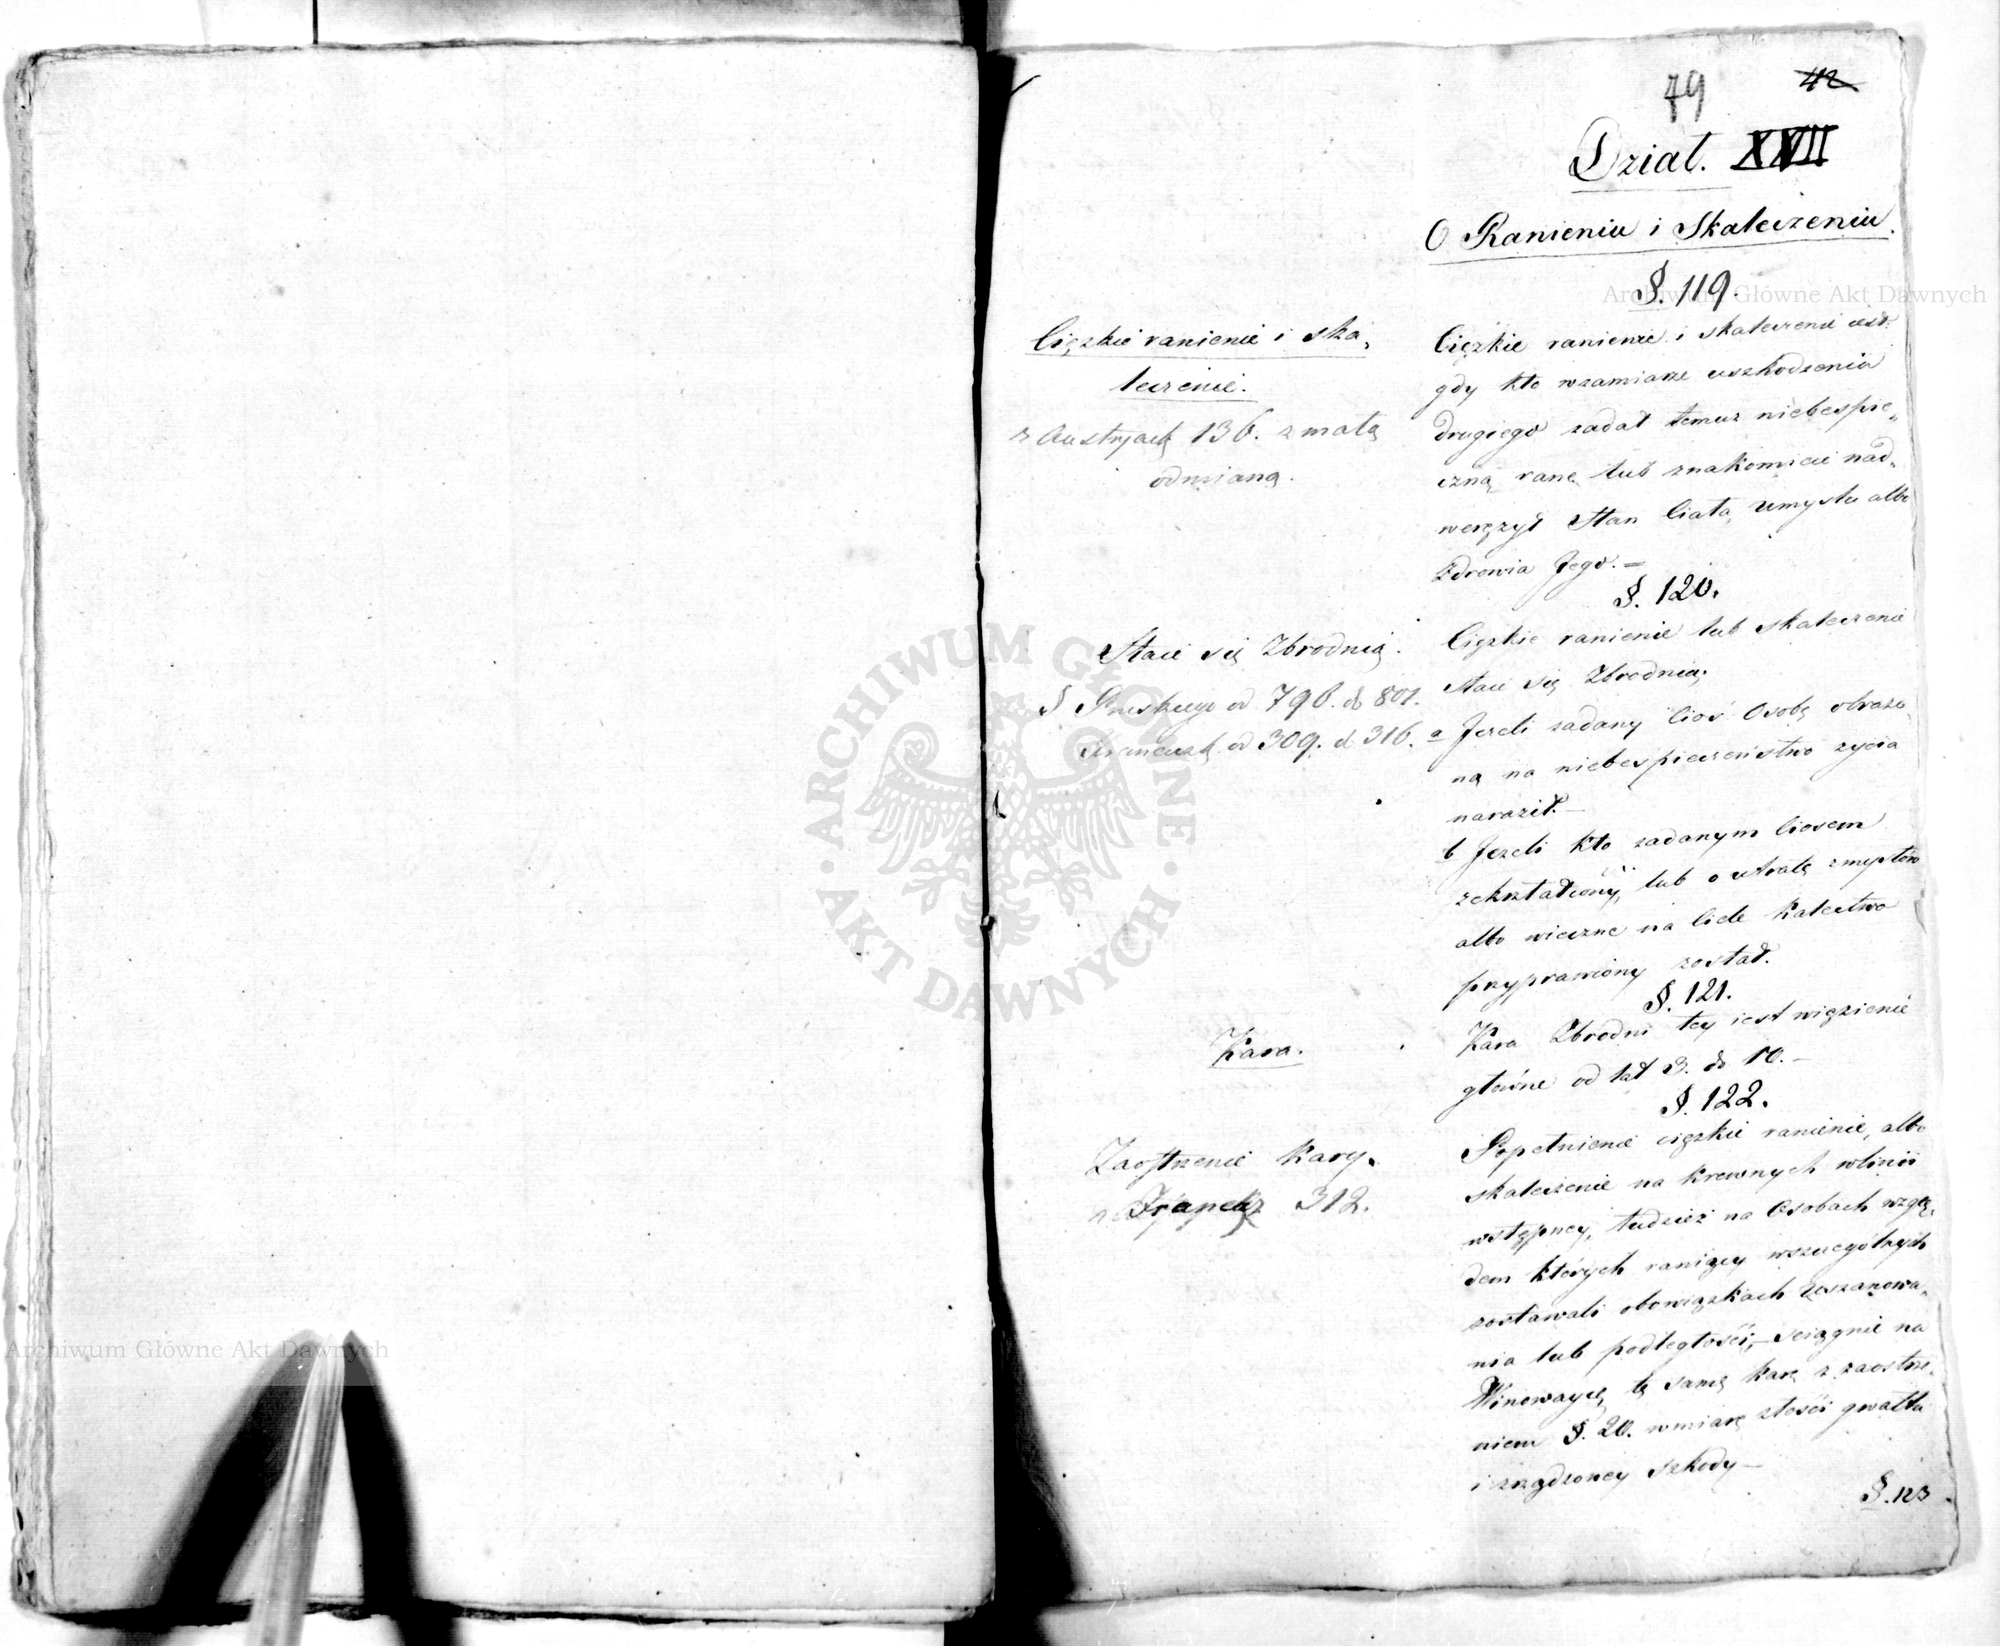 79 42
Dział. XVII
O Ranieniu i Skaleczeniu.
§. 119.
Cięzkie ranienie i ska„
leczenie.
z Austryack 136. z małą
odmianą.
Cięzkie ranienie i skaleczenie iest:
gdy kto wzamiarze uszkodzenia
drugiego zadał temuz niebespie„
czną ranę lub znakomicie nad„
weręzył Stan Ciała, umysłu albo
Zdrowia Jego.—
§. 120.
Staie się Zbrodnią.
§ Pruskiego od 796. do 801.
Francuzk. od 309. d 316.
Cięzkie ranienie lub skaleczenie
staie się Zbrodnią;
a Jezeli zadany Cios Osobę obrazo„
ną na niebespieczeństwo zycia
naraził.—
b Jezeli kto zadanym Ciosem
zekształcony, lub o utratę zmysłów
albo wieczne na Ciele Kalectwo
przyprawiony został.
§. 121.
Kara.
Kara Zbrodni tey iest więzienie
główne od lat 3. do 10.—
§. 122.
Zaostrzenie Kary.
Francuz 312.
Popełnienie cięzkie ranienie, albo
skaleczenie na krewnych wlinii
wstępney, tudziez na Osobach wzglę„
dem których raniący wszczególnych
zostawali obowiązkach uszanowa„
nia lub podległości,— sciągnie na
Winowaycę tę samę karę z zaostrze„
niem §. 20. wmiarę złości gwałtu
i zrządzoney szkody—
§. 123
Archiwum Główne Akt Dawnych
ARCHIWUM GŁÓWNE · AKT DAWNYCH ·
Archiwum Główne Akt Dawnych